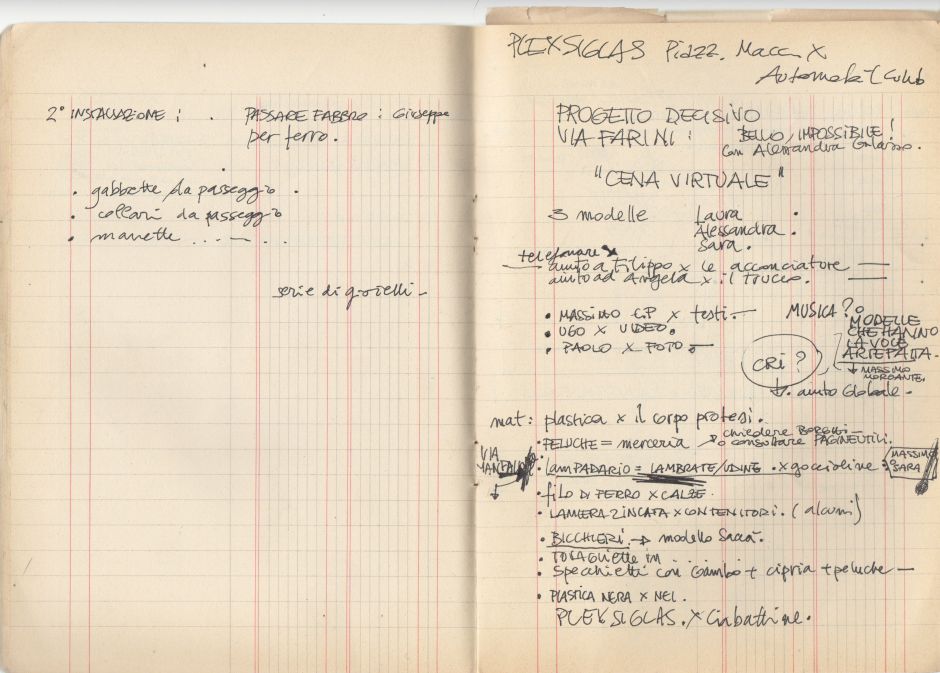 2° INSTALLAZIONE : . PASSARE FABBRO : Giuseppe
per ferro.
• gabbette da passeggio •
• collari da passeggio
• manette .... — ...
serie di gioielli –
PLEXSIGLAS Piazz. Macc X
PROGETTO DECISIVO
VIA FARINI : BELLO, IMPOSSIBILE !
con Alessandra Galasso.
"CENA VIRTUALE"
3 modelle Laura •
Alessandra •
Sara •
telefonare
aiuto a Filippo x le acconciature —
aiuto ad Angela x il trucco. —
• MASSIMO G.P x testi. — MUSICA ?
• UGO X VIDEO.
• PAOLO X FOTO. —
MODELLE
CHE HANNO
LA VOCE
ARTEFATTA –
CRI ?
↓ MASSIMO
MORGANTE.
↓. aiuto Globale –
mat : plastica x il corpo protesi.
• PELUCHE = merceria → chiedere BORGHI —
o consultare PAGINE UTILI.
VIA
• LAMPADARIO = LAMBRATE/UDINE . x goccioline •
MASSIMO
SARA
• FILO DI FERRO X CALZE.
• LAMIERA ZINCATA X CONTENITORI. (alcuni)
• BICCHIERI → modello
• TOVAGLIETTE in ....
• Specchietti con Gambo + cipria + peluche —
• PLASTICA NERA X NEI.
PLEXSIGLAS . X Ciabattine .